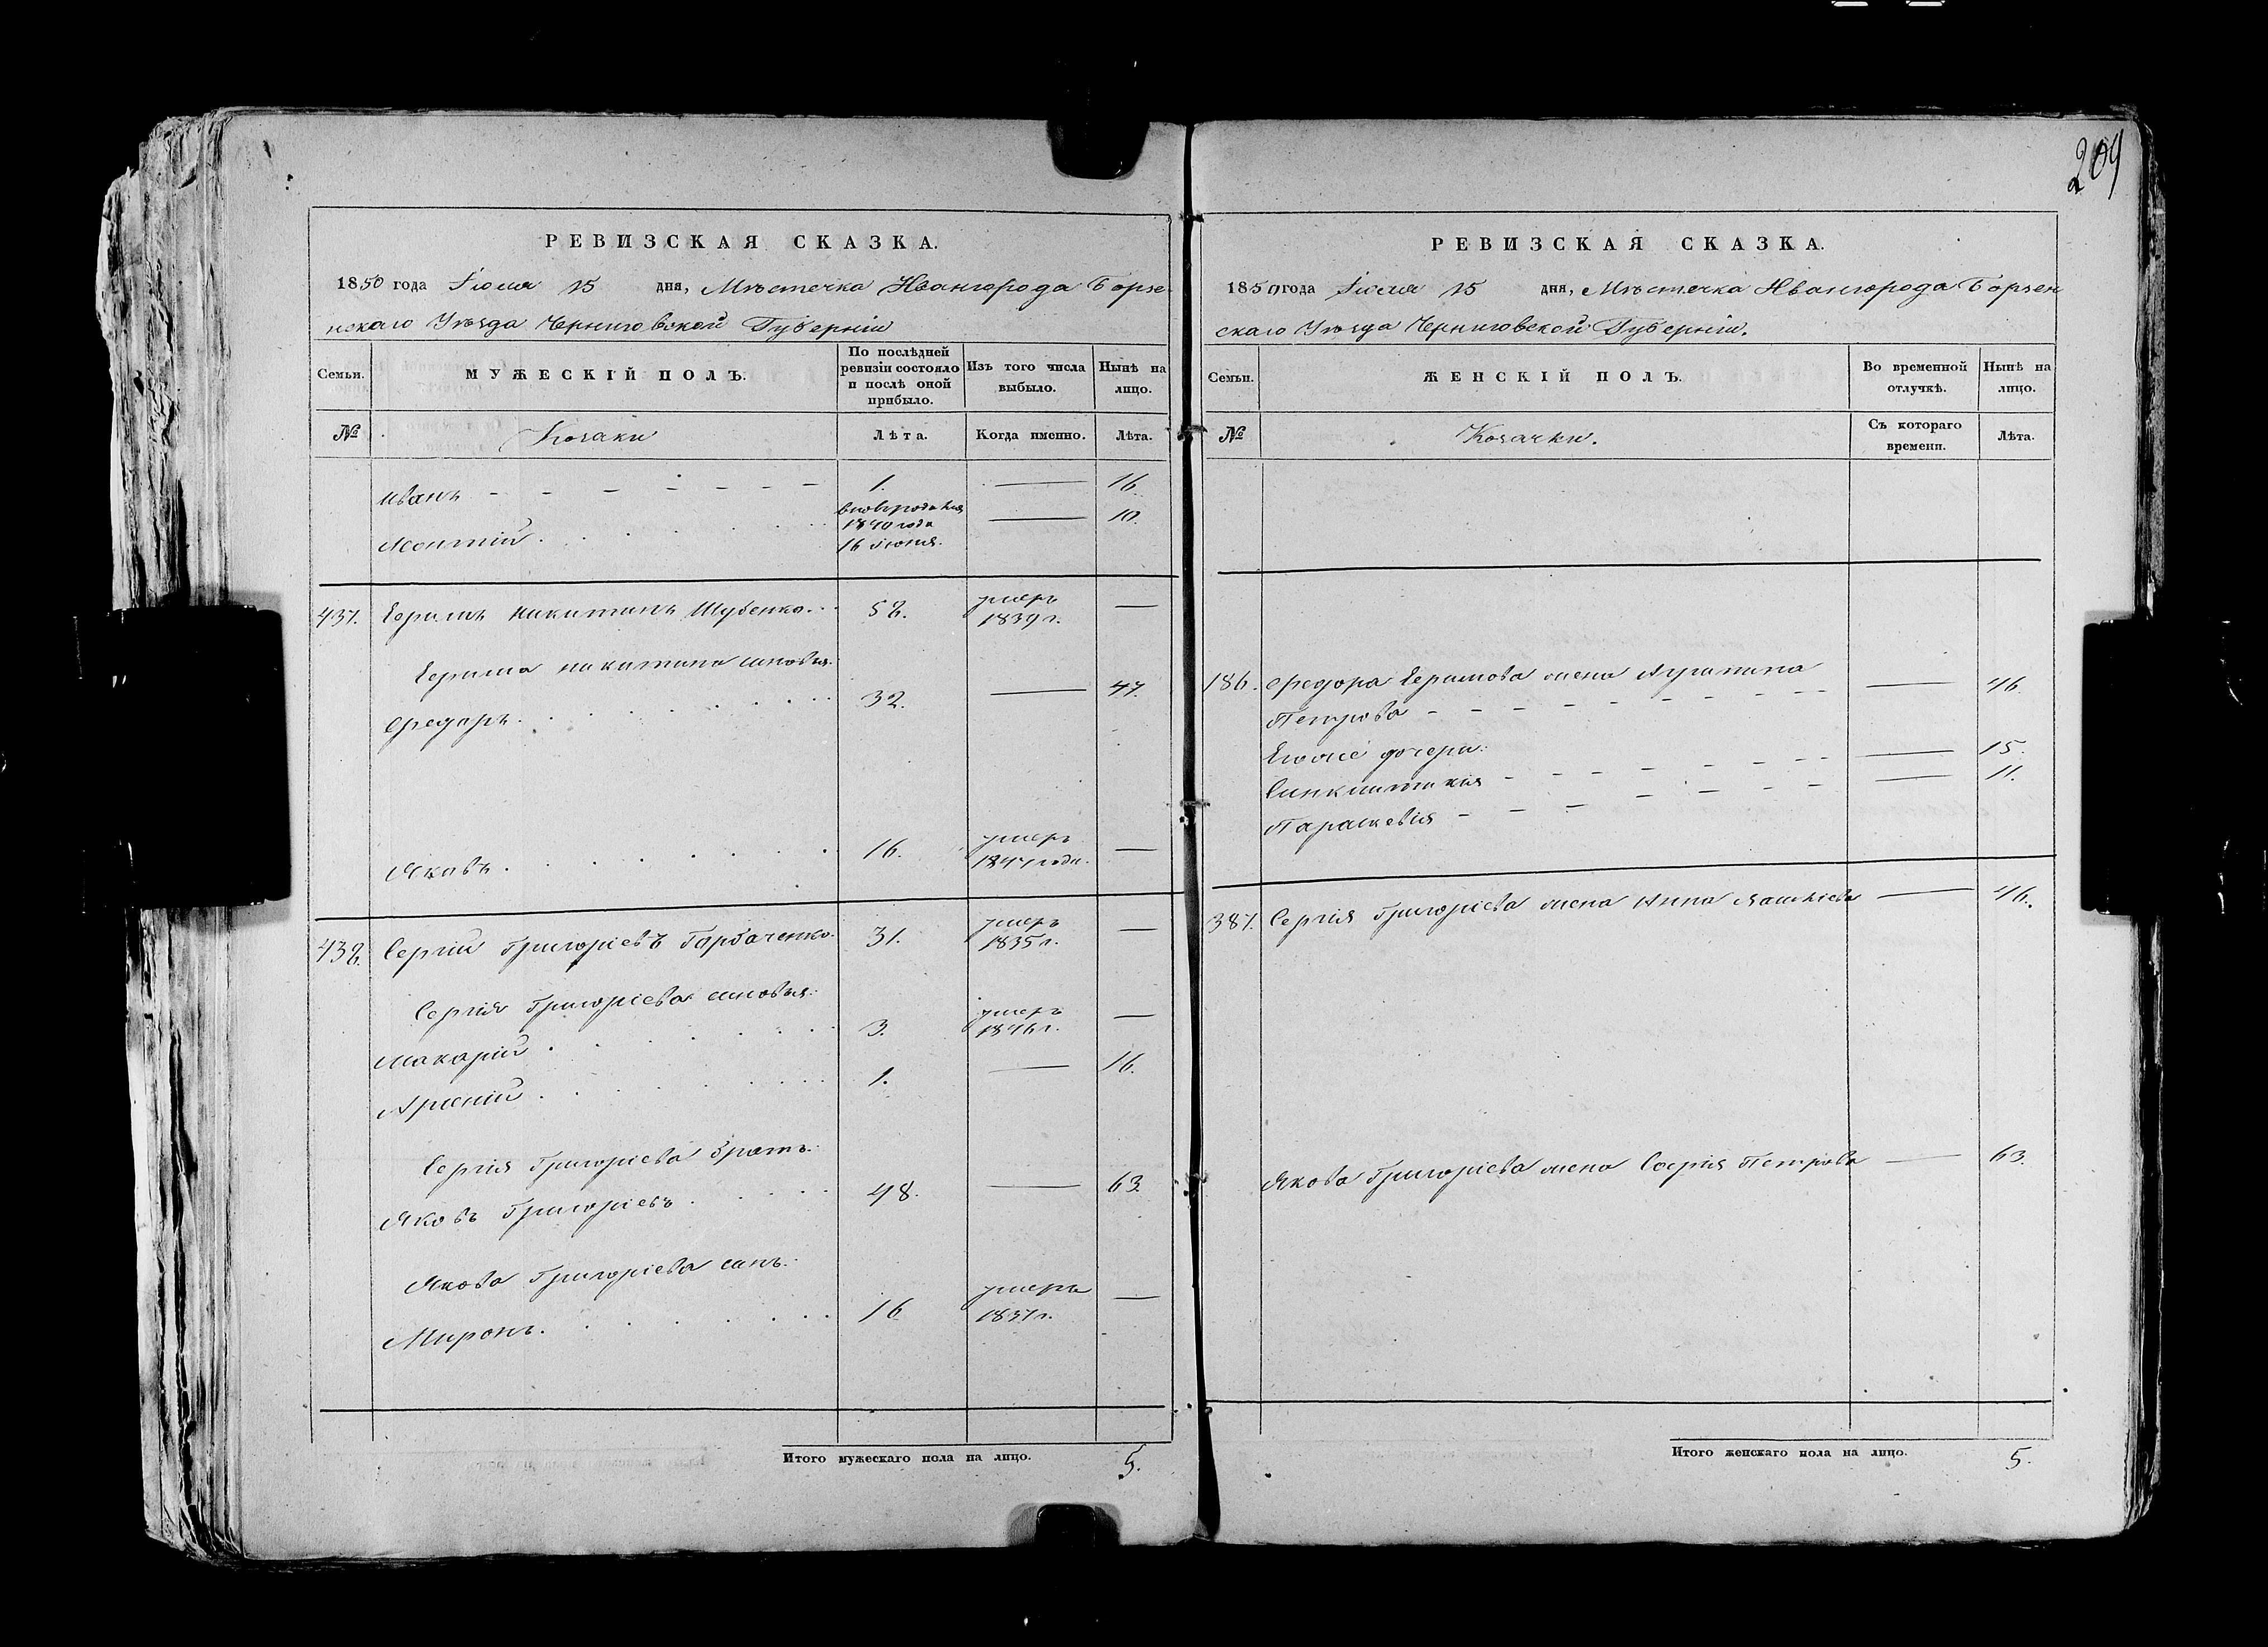 209
РЕВИЗСКАЯ СКАЗКА.
1850 года Іюля 15 дня, Мѣстечка Ивангорода Борзе
нскаго Уѣзда Черниговской Губерніи
Семьи.
МУЖЕСКІЙ ПОЛЪ.
По послѣдней ревизіи состояло и послѣ оной прибыло.
Изъ того числа выбыло.
Нынѣ на лицо.
№ Козаки Лѣта. Когда именно. Лѣта.
Иванъ 1. — 16
вновьрожденъ
1840 года — 10.
16 Іюня.
437. Ефимъ Никитинъ Шубенко 58. умеръ 1839 г. —
Ефима Никитина сыновья:
Федоръ 32. — 47.
Яковъ 16. умеръ 1844 года. —
438. Сергій Григоріевъ Горбаченко 31. умеръ 1835 г. —
Сергія Григоріева сыновья:
Макарій 3. умеръ 1846 г. —
Арсеній 1. — 16.
Сергія Григоріева братъ:
Яковъ Григоріевъ 48. — 63.
Якова Григоріева сынъ:
Миронъ 16 умеръ 1837 г. —
Итого мужескаго пола на лицо. 5.
РЕВИЗСКАЯ СКАЗКА.
1850 года Іюля 15 дня, Мѣстечка Ивангорода Борзен
скаго Уѣзда Черниговской Губерніи.
Семьи.
ЖЕНСКІЙ ПОЛЪ.
Во временной отлучкѣ.
Нынѣ на лицо.
№ Козачки. Съ котораго времени. Лѣта.
Федора Ефимова жена
Петрова — 46
Егоже дочери:
Синклитикія — 15.
Параскевія — 11.
387. Сергія Григоріева жена Анна — 46.
Якова Григоріева жена Софія Петрова — 63.
Итого женскаго пола на лицо. 5.